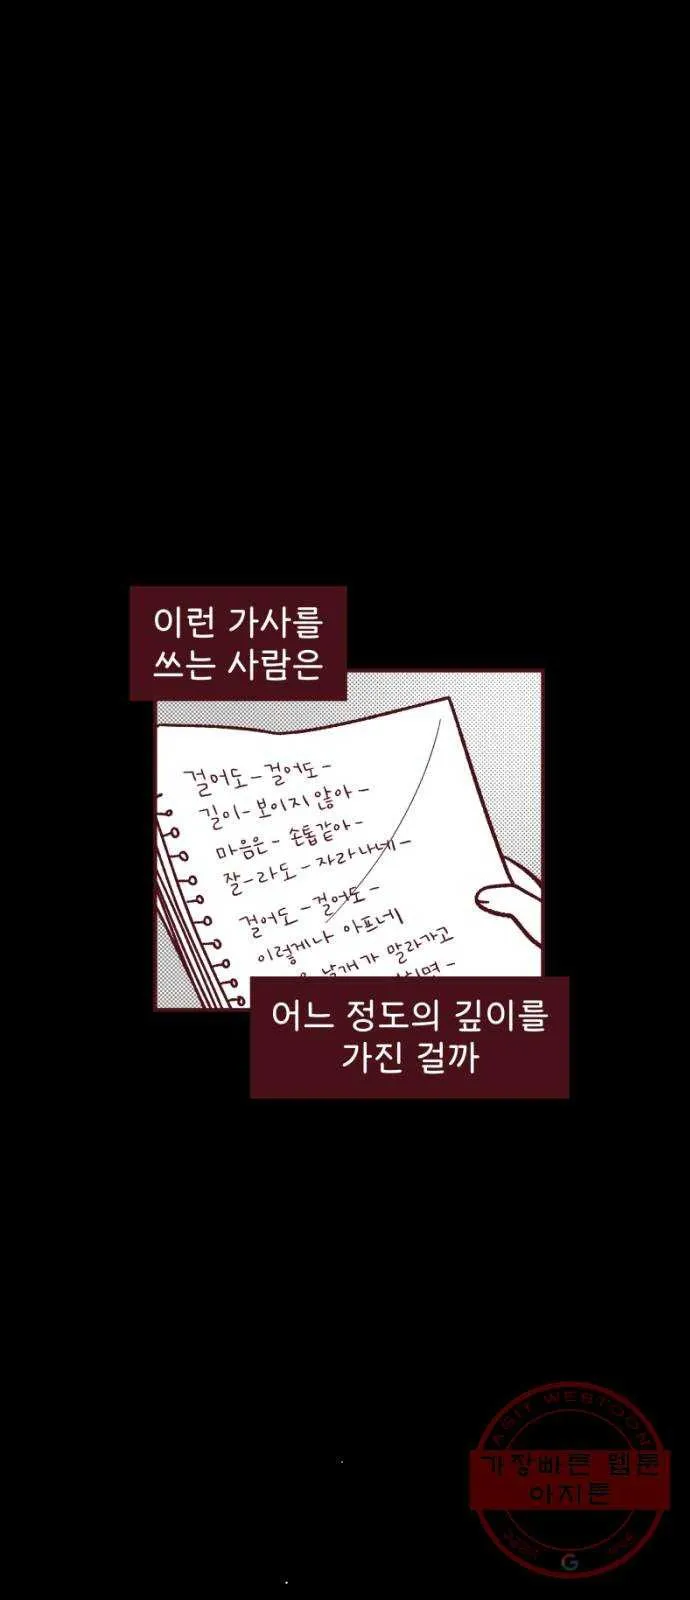 이런 가사를
쓰는 사람은
걸어도-걸어도-
길이-보이지 않아-
마음은-손톱같아-
잘-라도-자라나네-
걸어도-걸어도-
이렇게나 아프네
날개가 말라가고
어느 정도의 깊이를
가진 걸까
ASIT WEBTOON
가장빠른 웹툰
아지툰